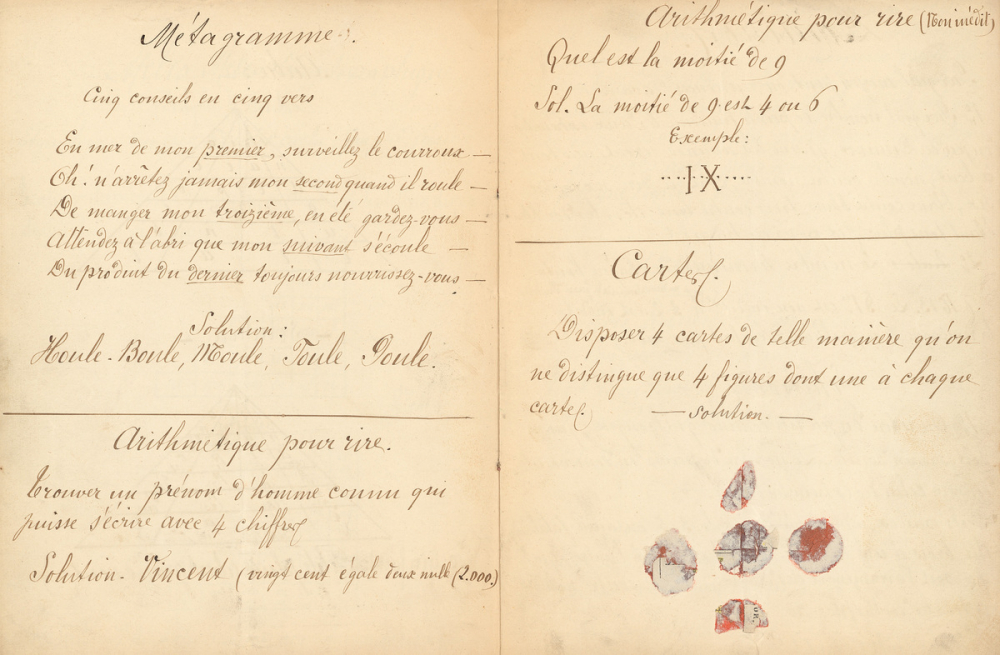 Métagramme.
Cinq conseils en cinq vers
En mer de mon premier, surveillez le courroux —
Oh! n'arrêtez jamais mon second quand il roule —
De manger mon troizième, en été gardez-vous —
Attendez à l'abri que mon suivant s'écoule —
Du produit du dernier toujours nourrissez-vous —
Solution:
Houle - Boule, Moule, Foule, Poule.
Arithmétique pour rire.
Trouver un prénom d'homme connu qui
puisse s'écrire avec 4 chiffres
Solution - Vincent (vingt cent égale deux mille (2.000.)
Arithmétique pour rire (Non inédit)
Quel est la moitié de 9
Sol. La moitié de 9 est 4 ou 6
Exemple:
IX
Cartes.
Disposer 4 cartes de telle manière qu'on
ne distingue que 4 figures dont une à chaque
cartes.
— solution. —